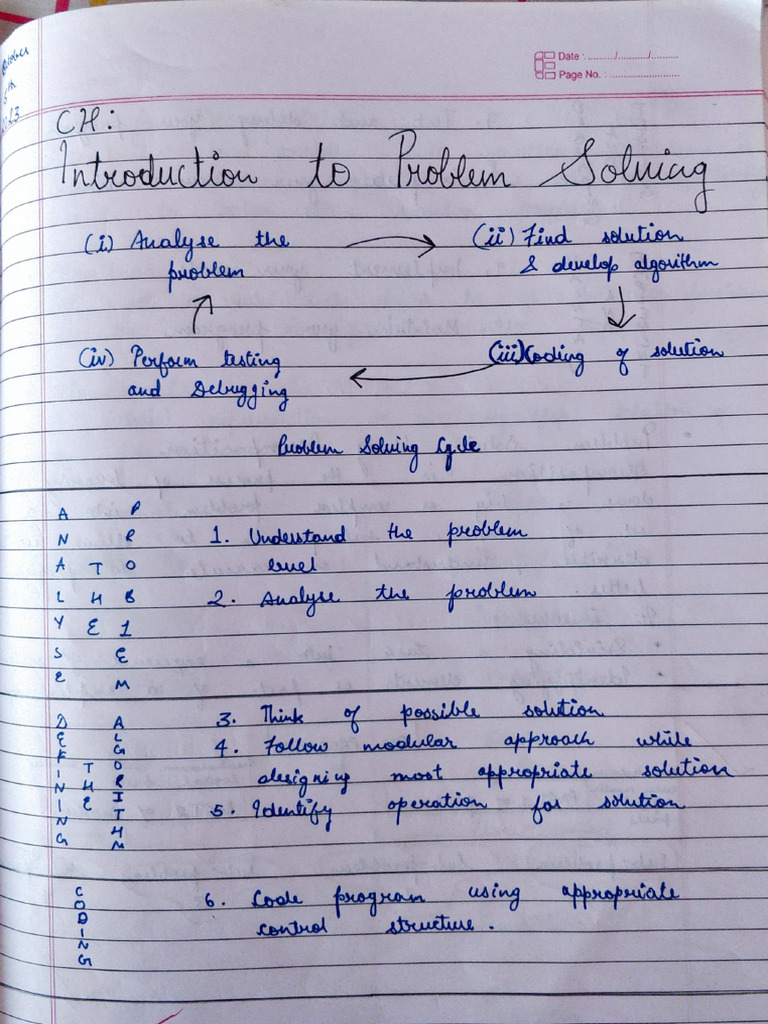 Date : ........../.........../..........
Page No. : ..........................
CH:
Introduction to Problem Solving
(i) Analyse the
problem
(ii) Find solution
& develop algorithm
(iv) Perform testing
and Debugging
(iii) Coding of solution
Problem Solving Cycle
ANALYSE
THE
PROBLEM
1. Understand the problem
level
2. Analyse the problem
DEFINING
THE
ALGORITHM
3. Think of possible solution
4. Follow modular approach while
designing most appropriate solution
5. Identify operation for solution
CODING
6. Code program using appropriate
control structure.